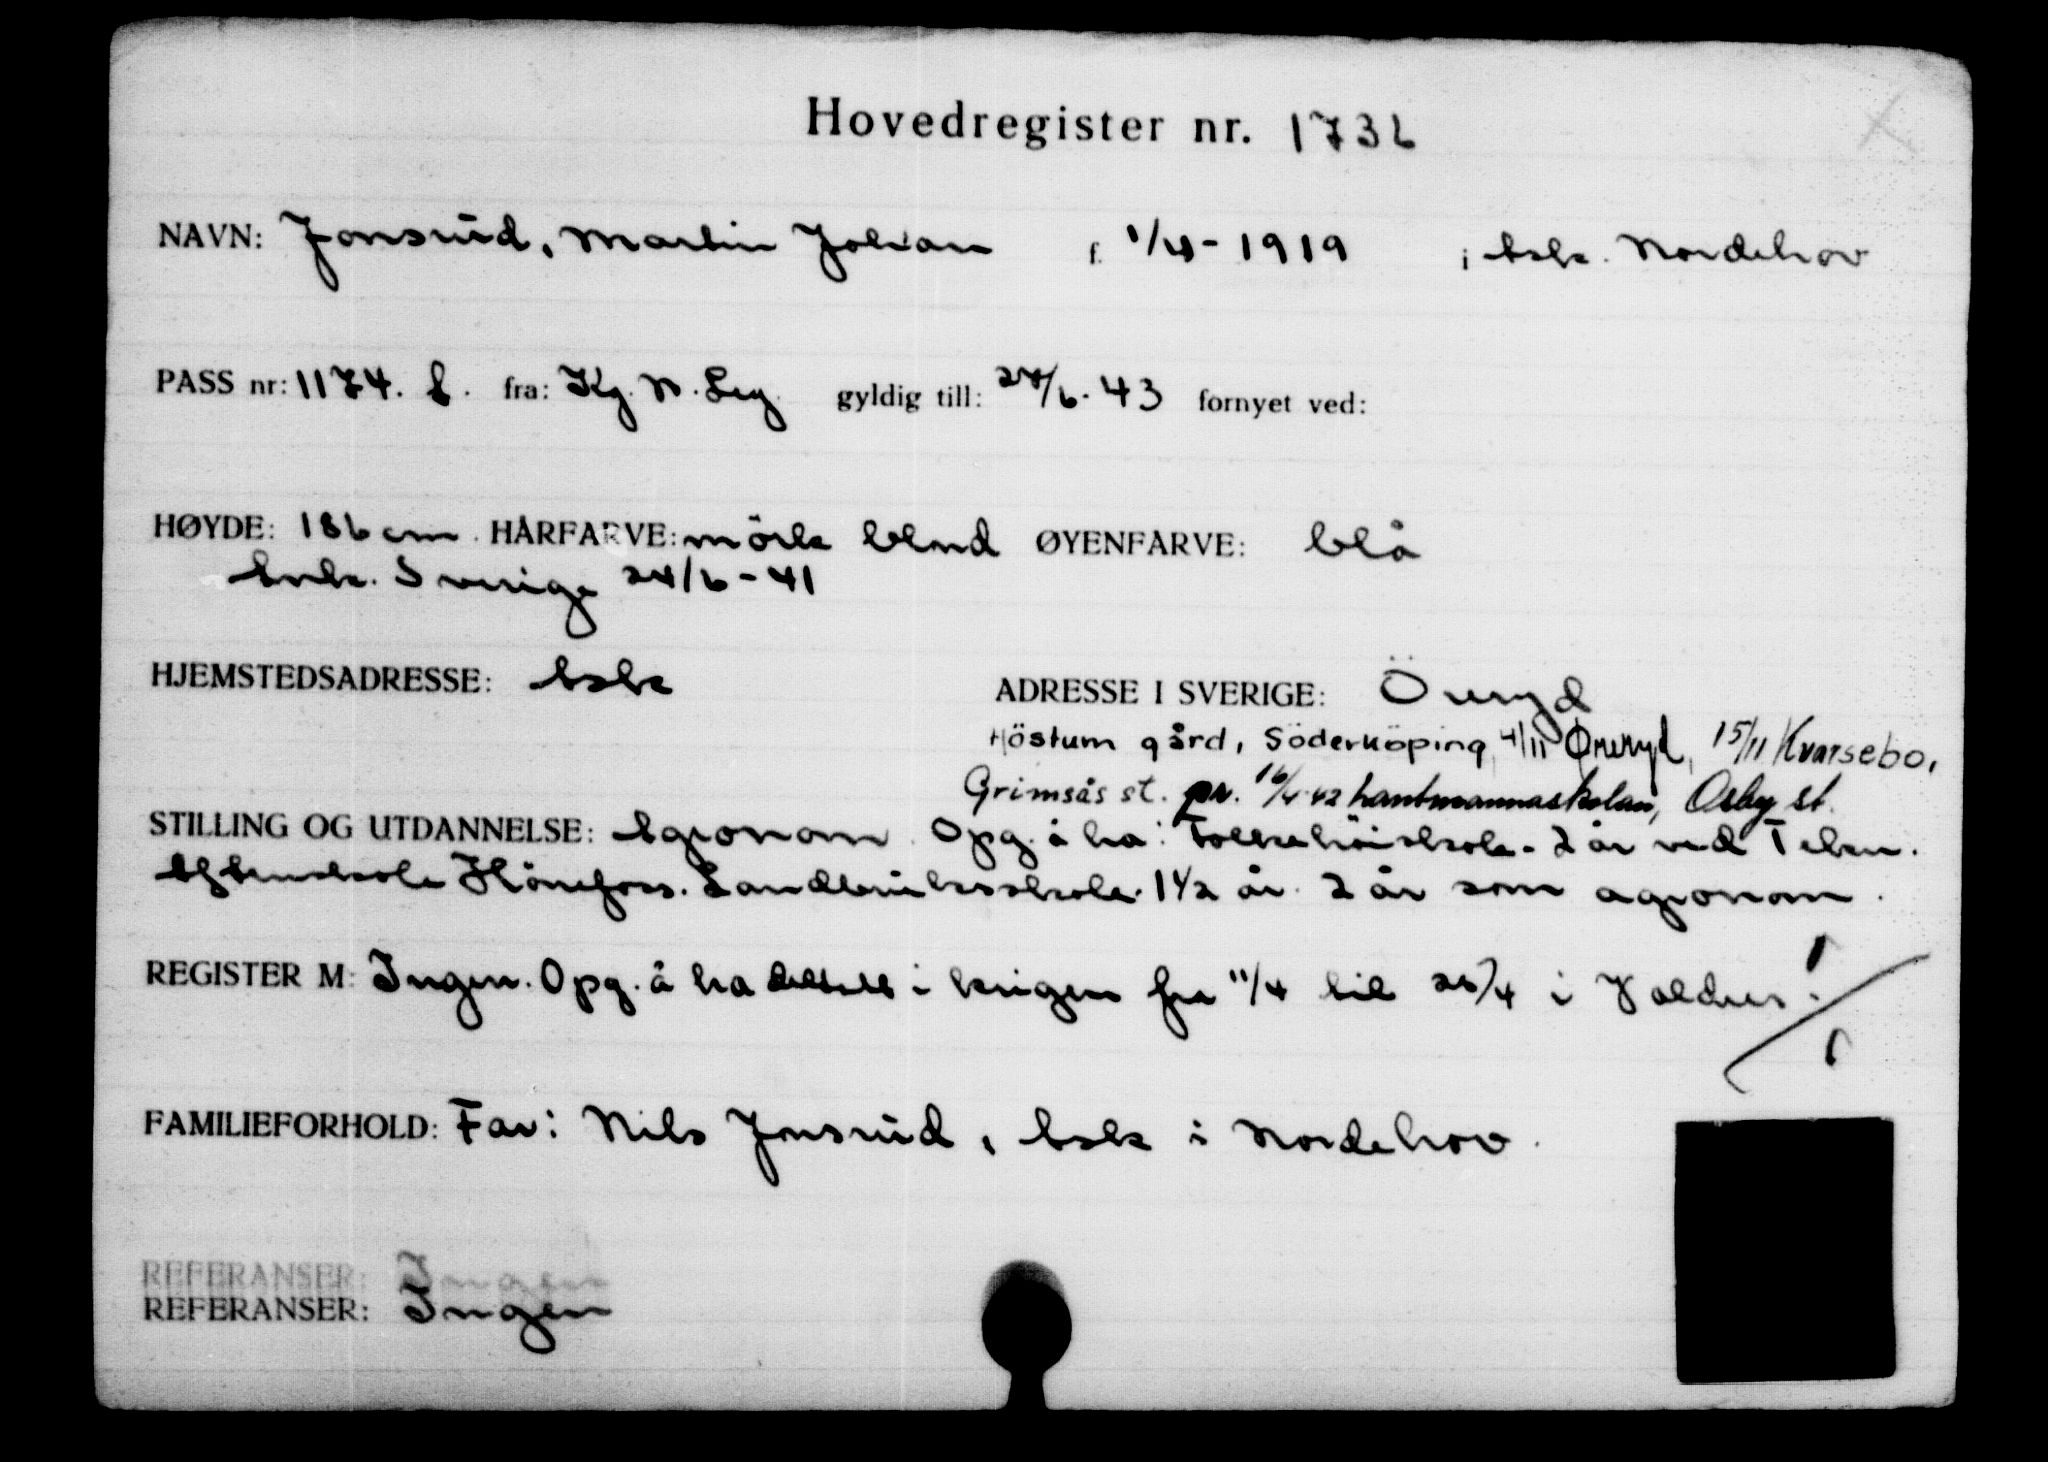 Hovedregister nr. 1736
NAVN: Jonsrud, Martin Johan f. 1/4-1919 i Ask. Nordehov
PASS nr: 1174. f. fra: Kg. N. Leg. gyldig till: 24/6-43 fornyet ved:
HØYDE: 186 cm. HÅRFARVE: mörk blond ØYENFARVE: blå
Ank. Sverige 24/6-41
HJEMSTEDSADRESSE: Ask ADRESSE I SVERIGE: Öreryd
Höstum gård, Söderköping, 4/11 Öreryd, 15/11 Kvarsebo,
Grimsås st. pr. 16/4-42 Lantmannaskolan, Osby st.
STILLING OG UTDANNELSE: Agronom. Opg. å ha: Folkehöiskole. 2 år ved Tekn.
Aftenskole Hönefoss. Landbruksskole. 1 1/2 år. 2 år som agronom.
REGISTER M: Ingen. Opg. å ha deltatt i krigen fra 11/4 til 25/4 i Valdres.
1/1
FAMILIEFORHOLD: Far: Nils Jonsrud, Ask i Nordehov.
REFERANSER: Ingen
REFERANSER: Ingen